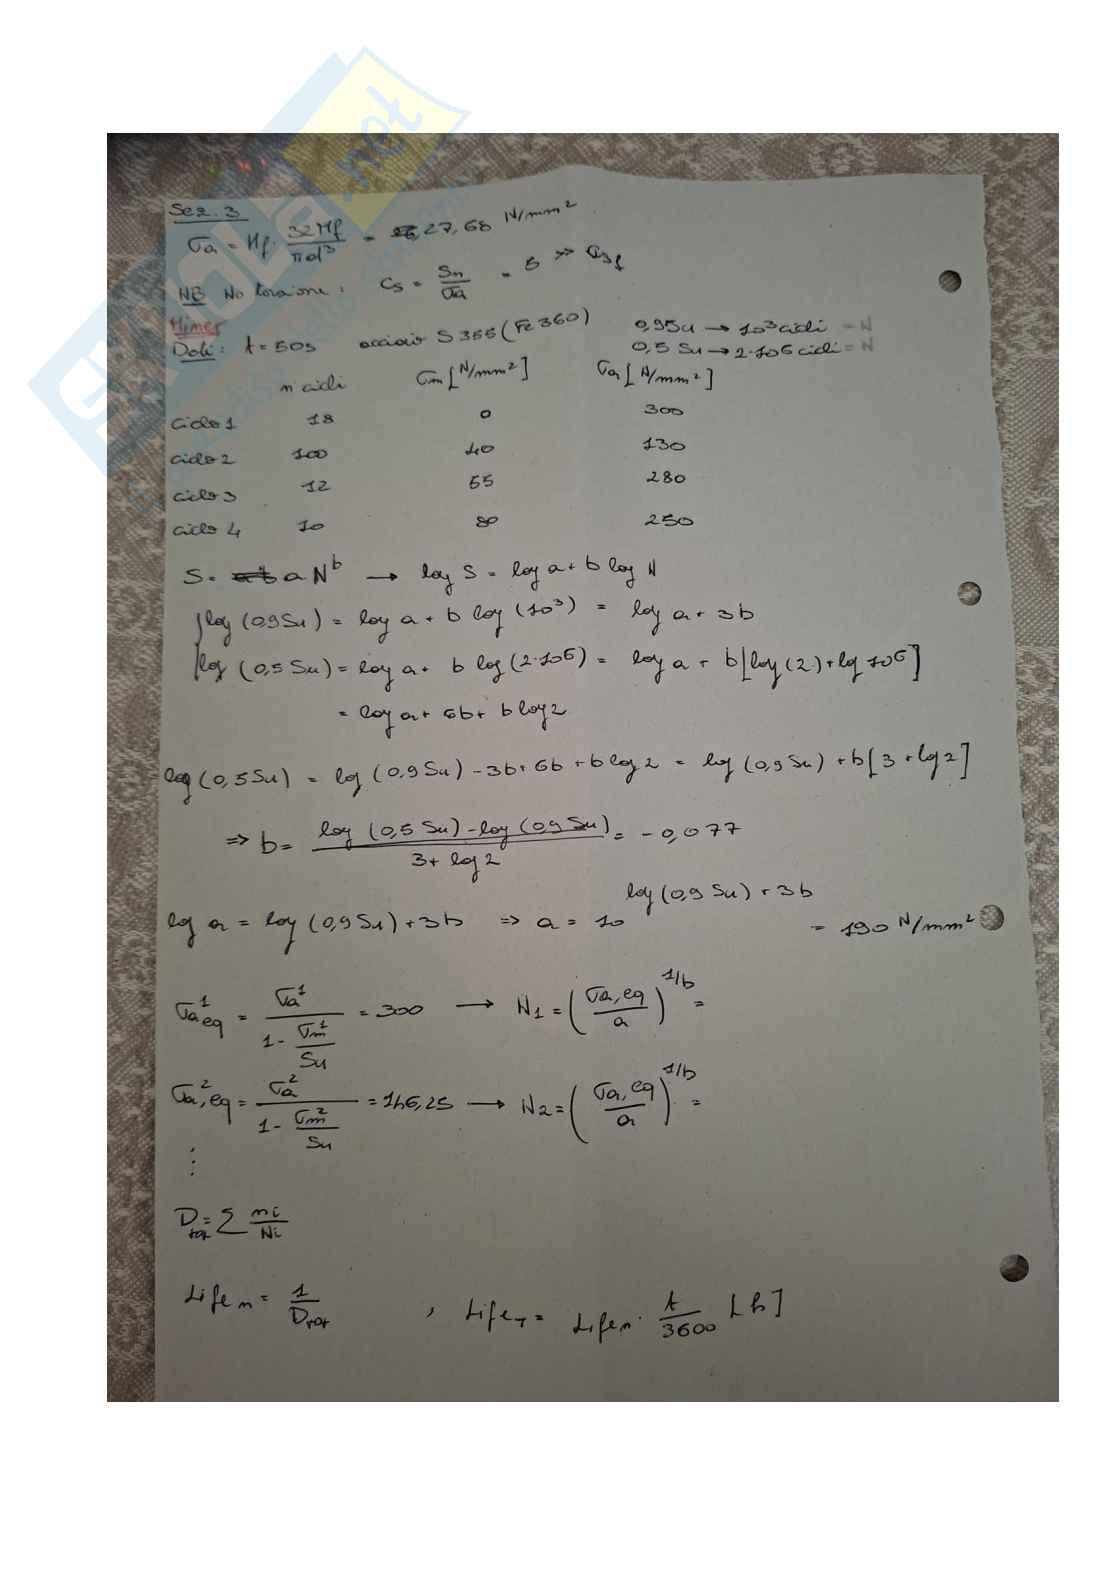 Sez. 3
σa = Mf · 32Mf / πd³ = 27,68 N/mm²
NB No torsione: Cs = Sn / σa = 5 >>
Miner
Dati: t = 50s acciaio S355 (Fe360) 0,9Su → 10³ cicli = N
0,5 Su → 2·10⁶ cicli = N
n cicli σm [N/mm²] σa [N/mm²]
ciclo 1 18 0 300
ciclo 2 100 40 130
ciclo 3 12 55 280
ciclo 4 10 80 250
S = a N^b → log S = log a + b log N
log (0,9Su) = log a + b log (10³) = log a + 3b
log (0,5 Su) = log a + b log (2·10⁶) = log a + b [log (2) + log 10⁶]
= log a + 6b + b log 2
log (0,5 Su) = log (0,9 Su) - 3b + 6b + b log 2 = log (0,9 Su) + b [3 + log 2]
⇒ b = log (0,5 Su) - log (0,9 Su) / 3 + log 2 = -0,077
log a = log (0,9 Su) + 3b ⇒ a = 10^(log (0,9 Su) + 3b) = 190 N/mm²
σa¹eq = σa¹ / (1 - σm¹ / Su) = 300 → N1 = (σa,eq / a)^1/b =
σa²,eq = σa² / (1 - σm² / Su) = 146,25 → N2 = (σa,eq / a)^1/b =
⋮
Dtot = Σ ni / Ni
Life n = 1 / Dtot , Life T = Life n · t / 3600 [h]